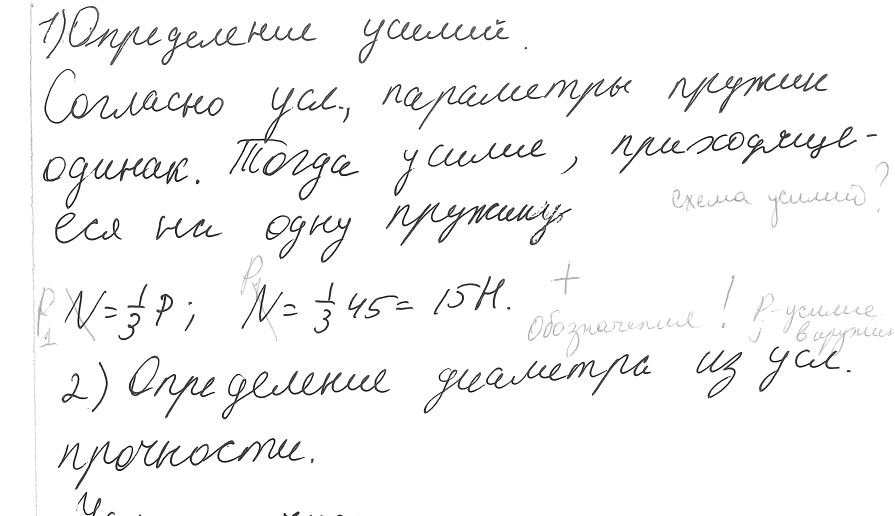 1) Определение усилий.
Согласно усл., параметры пружин
одинак. Тогда усилие, приходяще-
схема усилий?
еся на одну пружину
P1 N = 1/3 P; N = 1/3 45 = 15Н. +
Обозначения! P - усилие
в пружин
2) Определение диаметра из усл.
прочности.